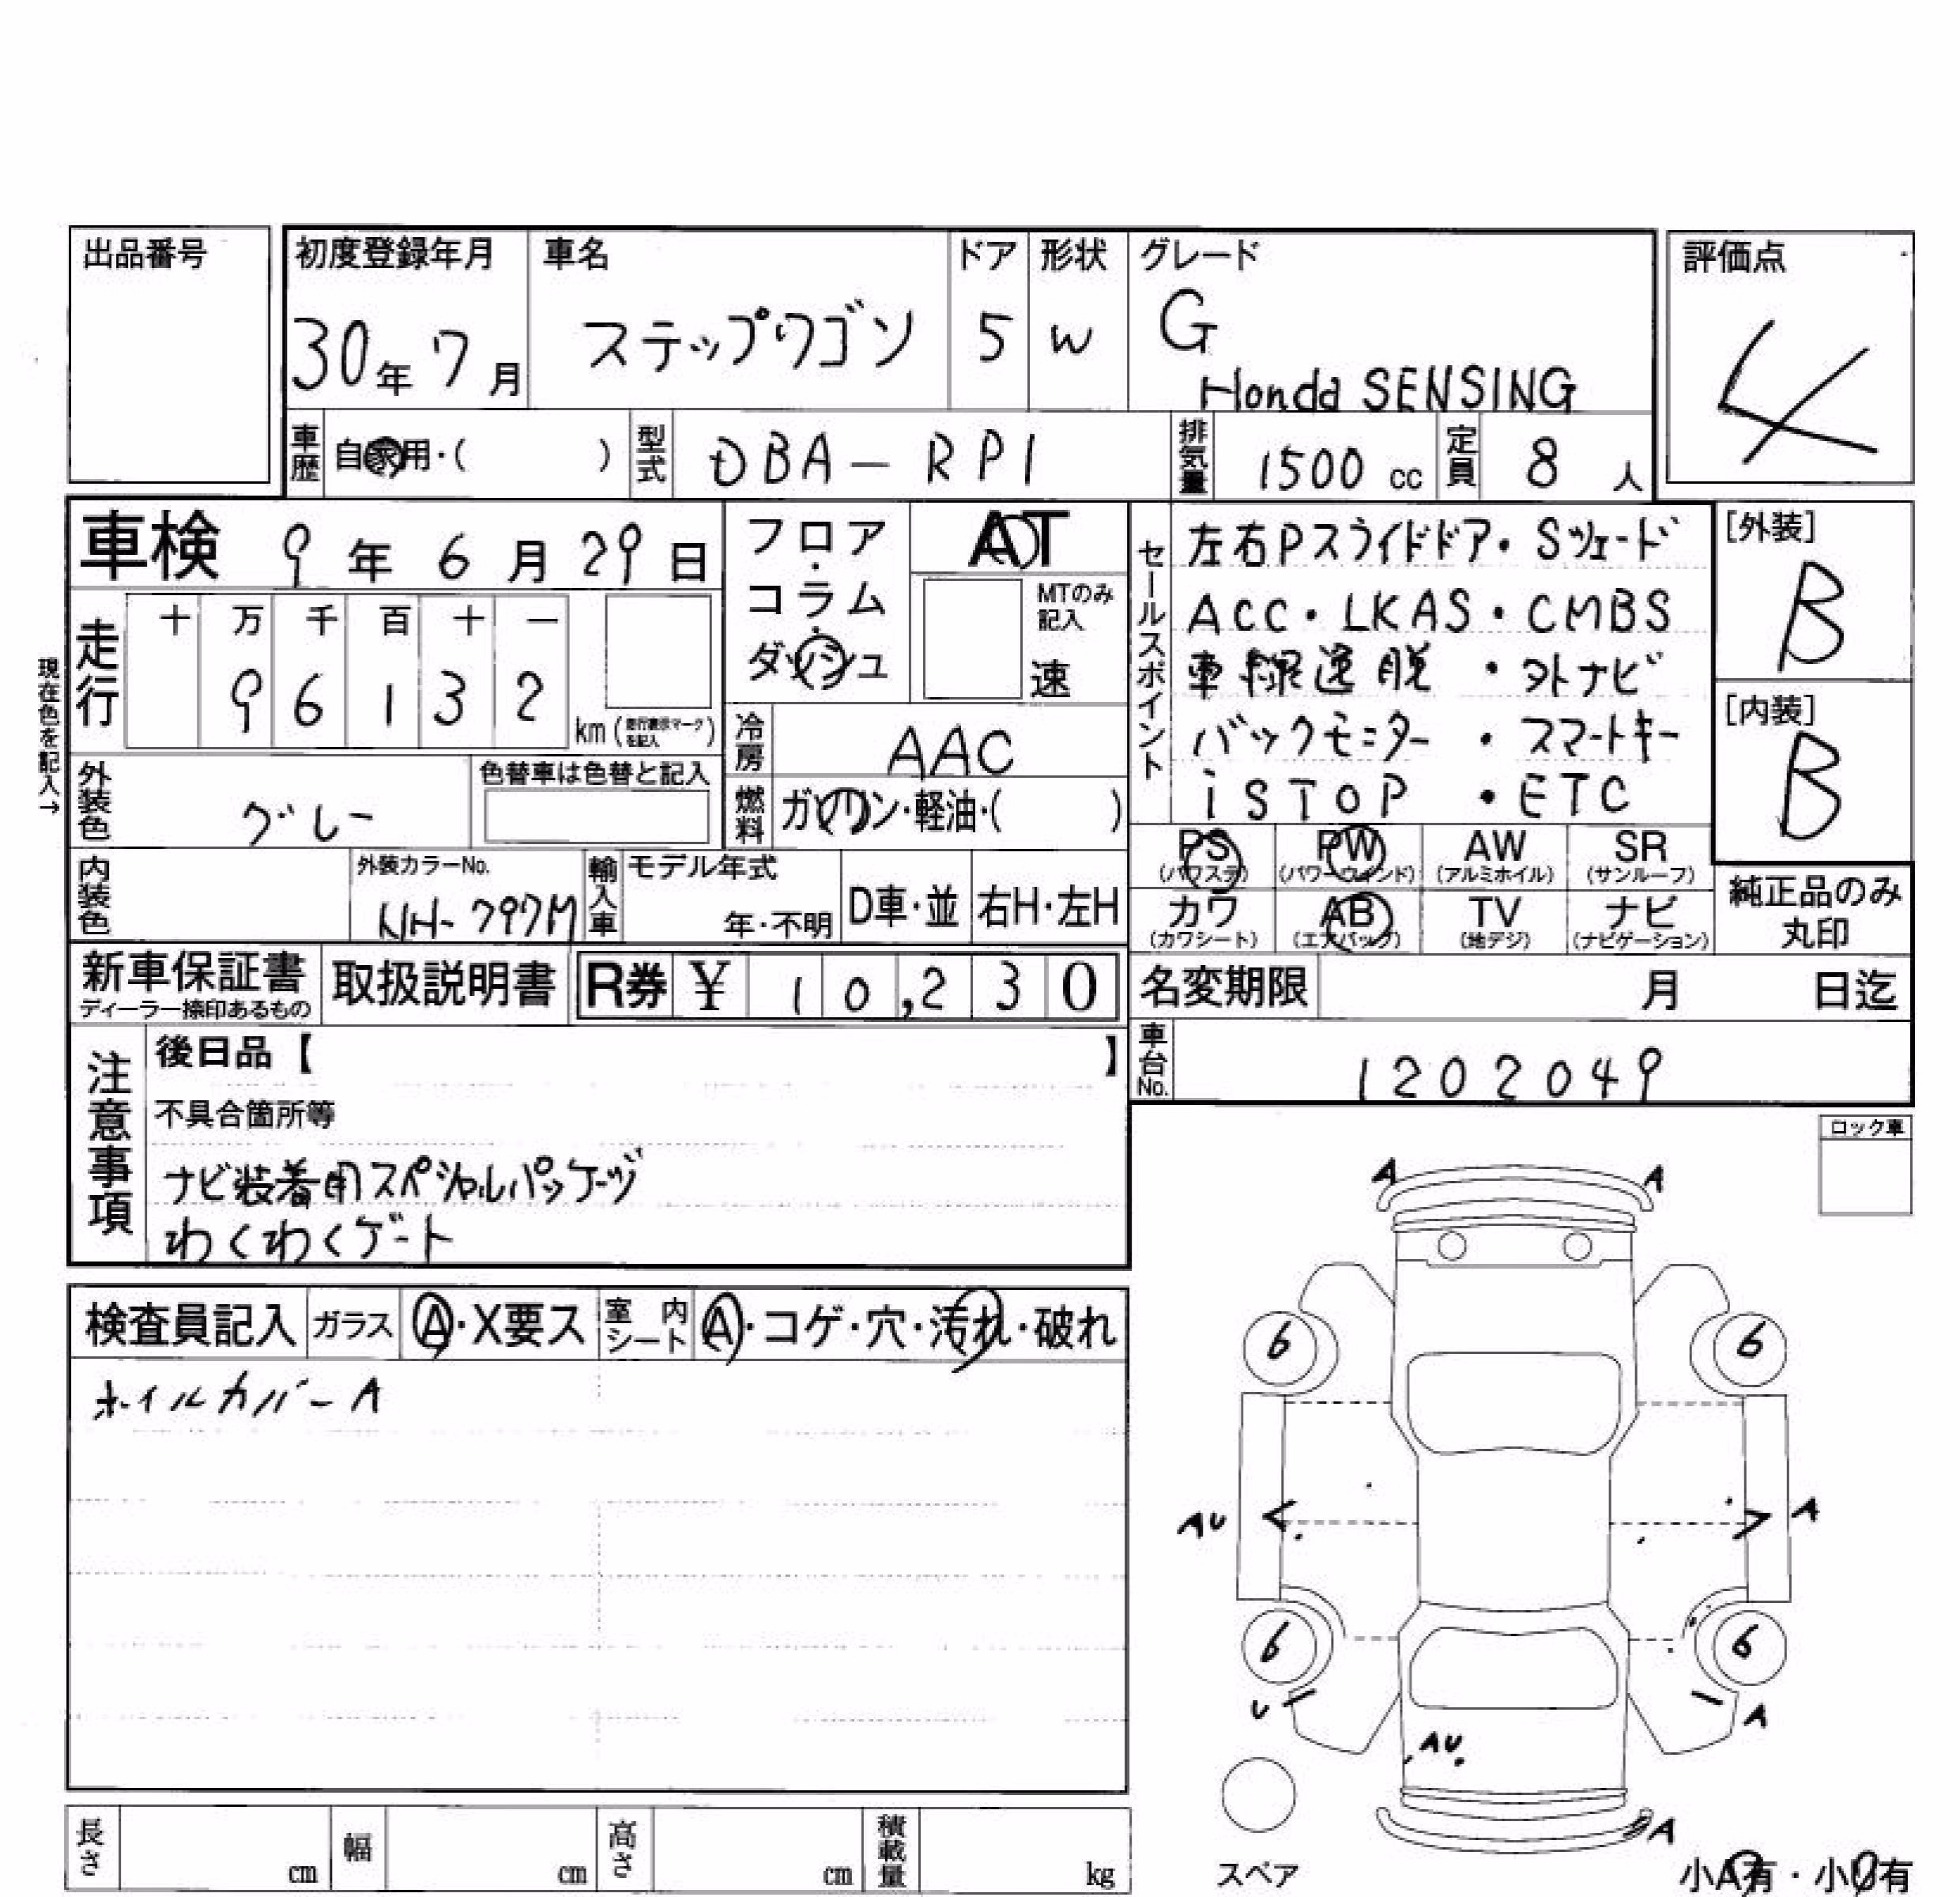 出品番号
初度登録年月 車名 ドア 形状 グレード 評価点
30年 7月 ステップワゴン 5 W G
Honda SENSING
4
車歴 自家用・( ) 型式 DBA-RP1 排気量 1500 cc 定員 8 人
車検 9 年 6 月 29 日
フロア・コラム・ダッシュ
AT
MTのみ記入
速
走行 十 万 千 百 十 一
9 6 1 3 2 km (走行表示マークを記入)
現在色を記入→
冷房 AAC
外装色 グレー 色替車は色替と記入
燃料 ガソリン・軽油・( )
内装色 外装カラーNo. NH-797M
輸入車 モデル年式 年・不明 D車・並 右H・左H
セールスポイント
左右Pスライドドア・Sツェード
ACC・LKAS・CMBS
車線逸脱・外ナビ
バックモニター・スマートキー
iSTOP・ETC
[外装]
B
[内装]
B
PS (パワステ) PW (パワーウインド) AW (アルミホイル) SR (サンルーフ)
カワ (カワシート) AB (エアバッグ) TV (地デジ) ナビ (ナビゲーション)
純正品のみ丸印
新車保証書 ディーラー捺印あるもの 取扱説明書 R券 ¥ 10,230
名変期限 月 日迄
車台No. 1202049
注意事項
後日品【 】
不具合箇所等
ナビ装着用スペシャルパッケージ
わくわくゲート
ロック車
検査員記入 ガラス A・X要ス 室内シート A・コゲ・穴・汚れ・破れ
ホイルカバーA
A A
6 6
AU A
6 6
U A
AU
A
スペア
小A有・小U有
長さ cm 幅 cm 高さ cm 積載量 kg